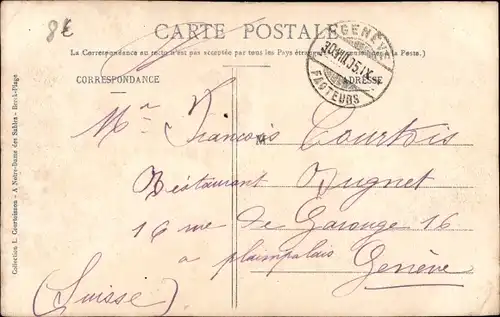 8€
CARTE POSTALE
La Correspondance au recto n'est pas acceptée par tous les Pays étrangers (Se à la Poste.)
CORRESPONDANCE
ADRESSE
GENÈVE
FACTEURS
Mr François Courtois
M
Restaurant Dugnet
16 rue de Carouge 16
a plainpalais
Genève
(Suisse)
Collection L. Gourtoisson - A Notre-Dame des Sables - Berck-Plage